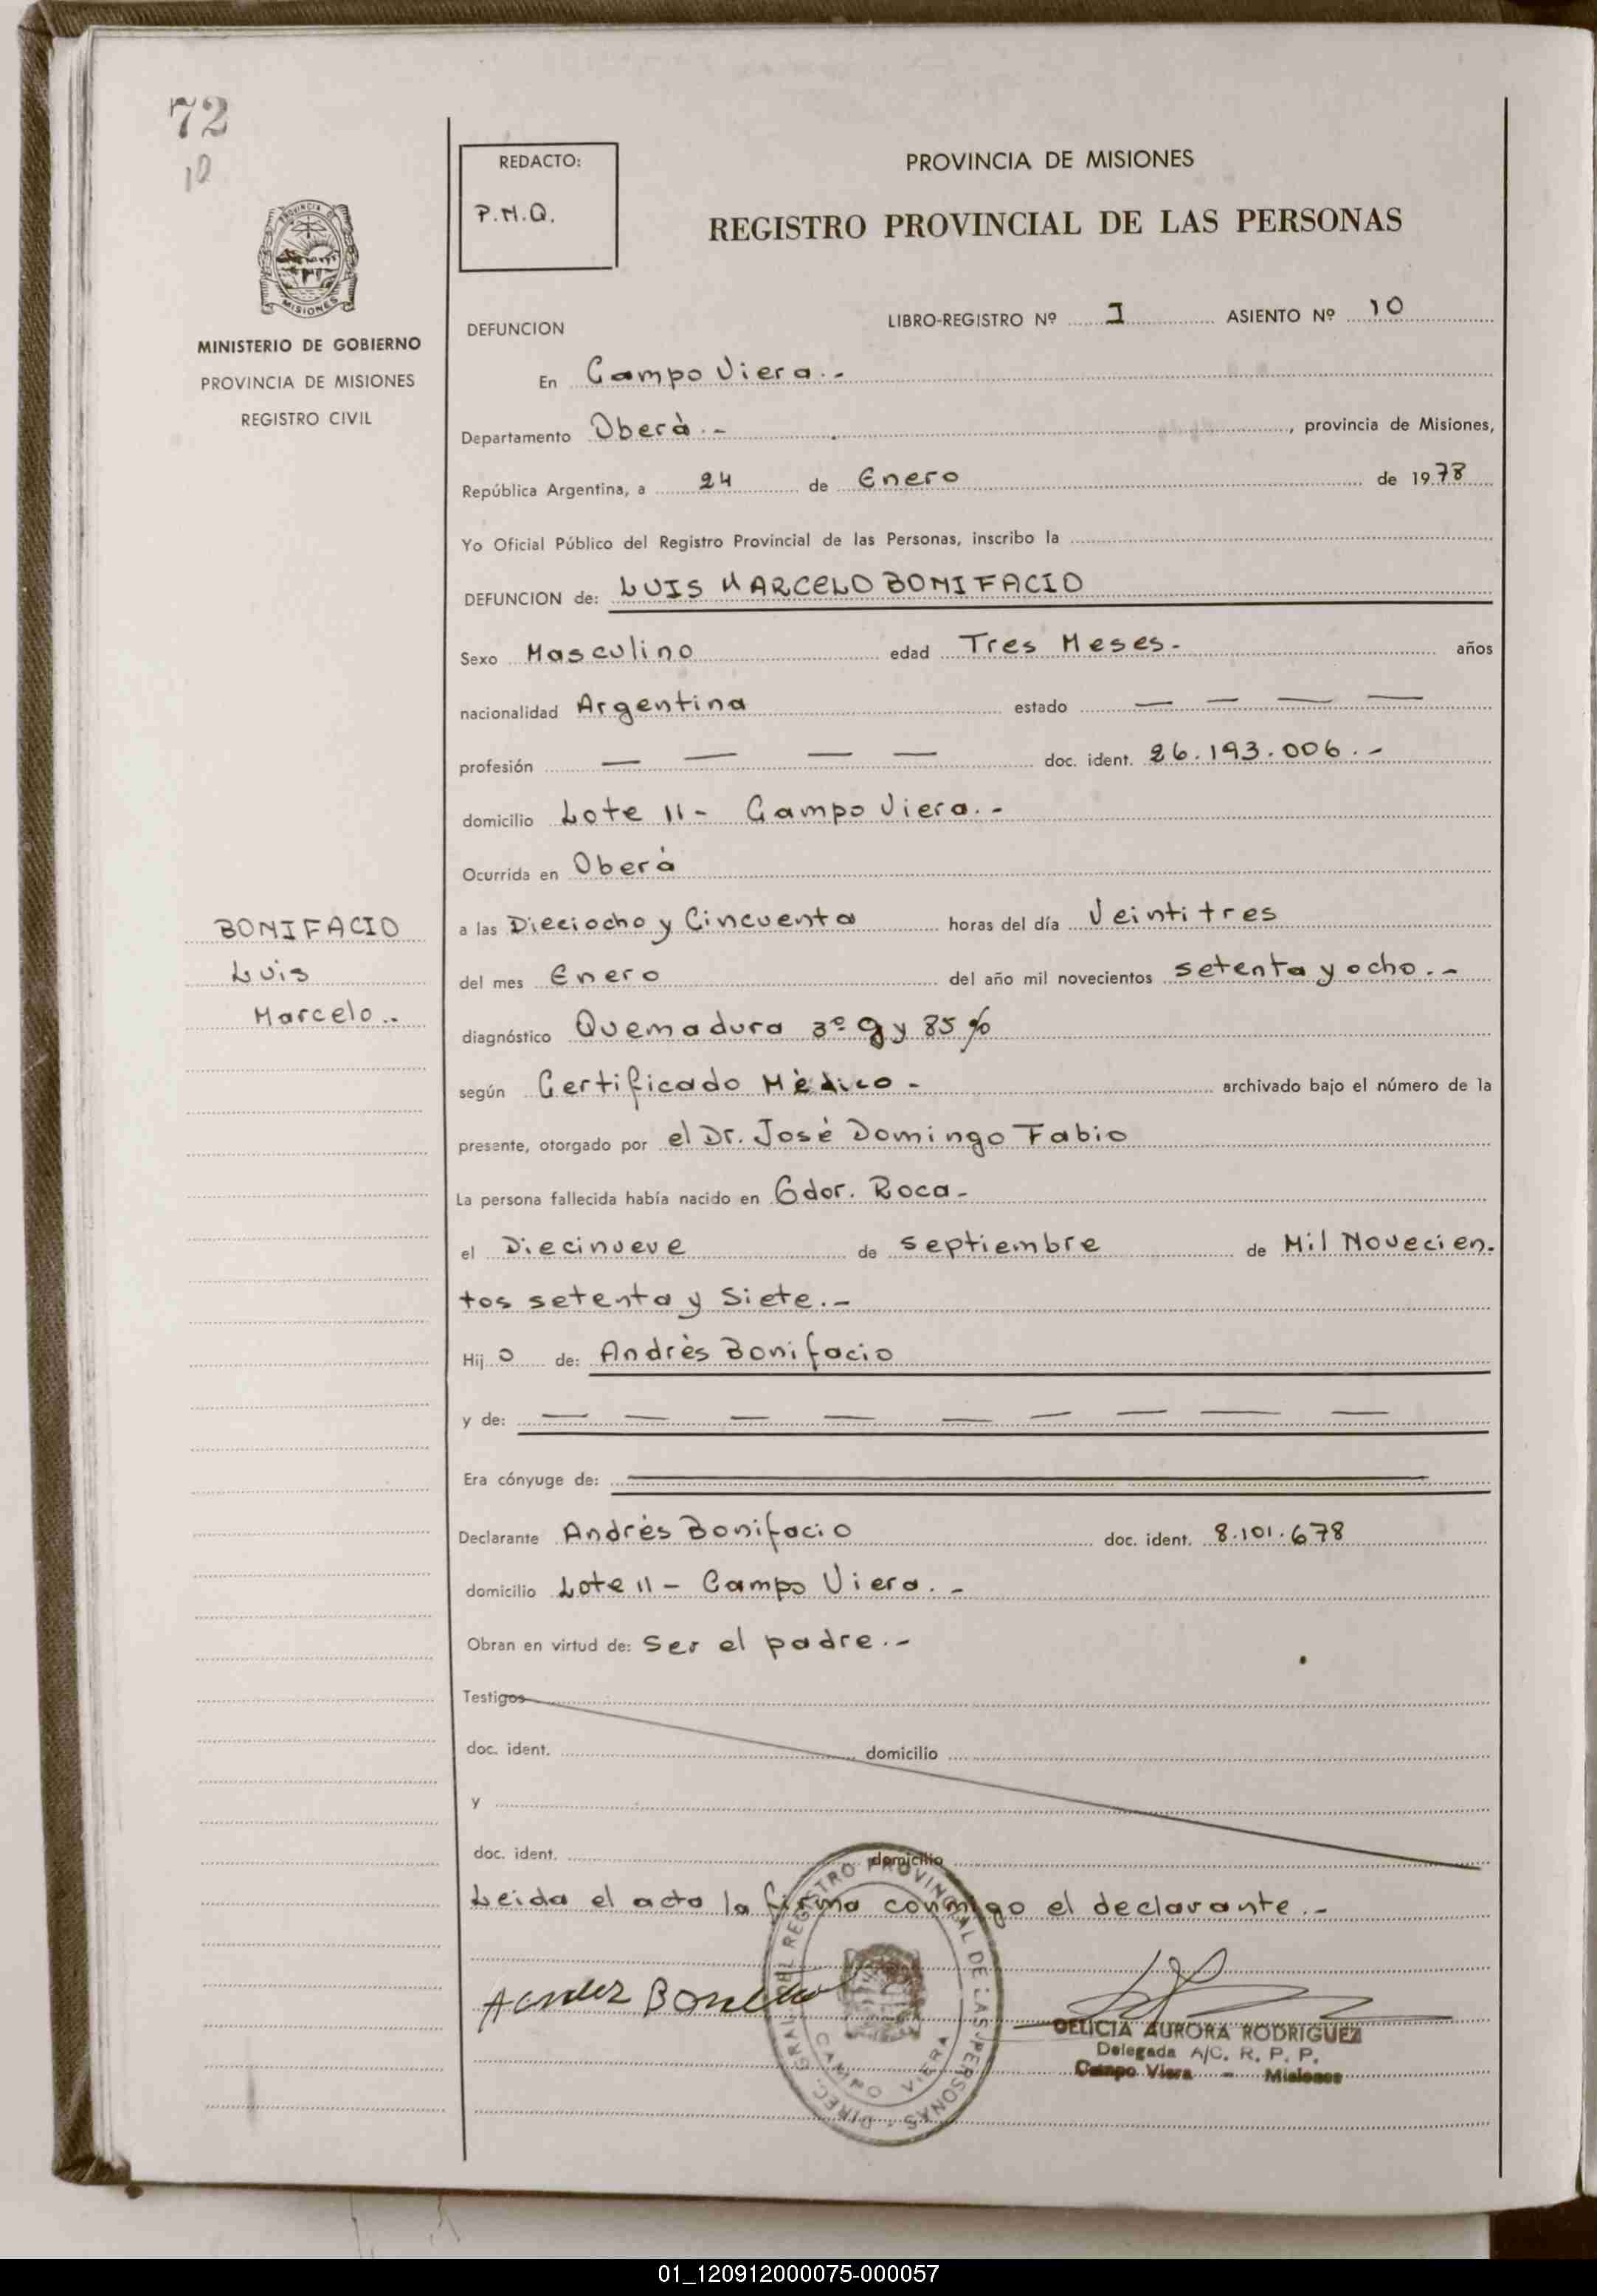 72
10
PROVINCIA DE
MISIONES
MINISTERIO DE GOBIERNO
PROVINCIA DE MISIONES
REGISTRO CIVIL
BONIFACIO
Luis
Marcelo..
REDACTO:
P.M.Q.
PROVINCIA DE MISIONES
REGISTRO PROVINCIAL DE LAS PERSONAS
DEFUNCION LIBRO-REGISTRO Nº I ASIENTO Nº 10
En Campo Viera.-
Departamento Oberà.- , provincia de Misiones,
República Argentina, a 24 de Enero de 1978
Yo Oficial Público del Registro Provincial de las Personas, inscribo la
DEFUNCION de: LUIS MARCELO BONIFACIO
Sexo Masculino edad Tres Meses.- años
nacionalidad Argentina estado — — — —
profesión — — — — doc. ident. 26.193.006.-
domicilio Lote 11- Campo Viera.-
Ocurrida en Oberà
a las Dieciocho y Cincuenta horas del día Veintitres
del mes Enero del año mil novecientos setenta y ocho.-
diagnóstico Quemadura 3º g y 85%
según Certificado Mèdico - archivado bajo el número de la
presente, otorgado por el Dr. José Domingo Fabio
La persona fallecida había nacido en Gdor. Roca-
el Diecinueve de septiembre de Mil Novecien.
tos setenta y Siete.-
Hij o de: Andrès Bonifacio
y de: — — — — — — — — —
Era cónyuge de:
Declarante Andrès Bonifacio doc. ident. 8.101.678
domicilio Lote 11 - Campo Viera.-
Obran en virtud de: Ser el padre.-
Testigos
doc. ident. domicilio
y
doc. ident. domicilio
Leida el acta la firma conmigo el declarante.-
DIREC. GRAL. DEL REGISTRO PROVINCIAL DE LAS PERSONAS
CAMPO VIERA
DELICIA AURORA RODRIGUEZ
Delegada A/C. R. P. P.
Campo Viera - Misiones
01_120912000075-000057